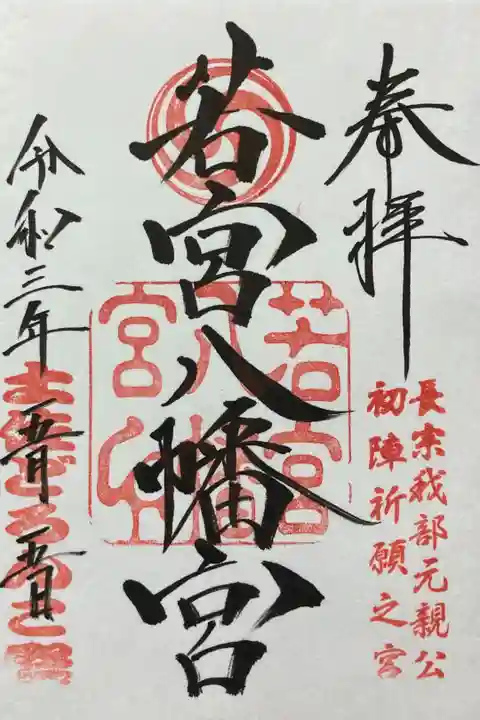 奉拝
長宗我部元親公
初陣祈願之宮
若宮八幡宮
若宮
八幡
宮
令和三年
五月
五日